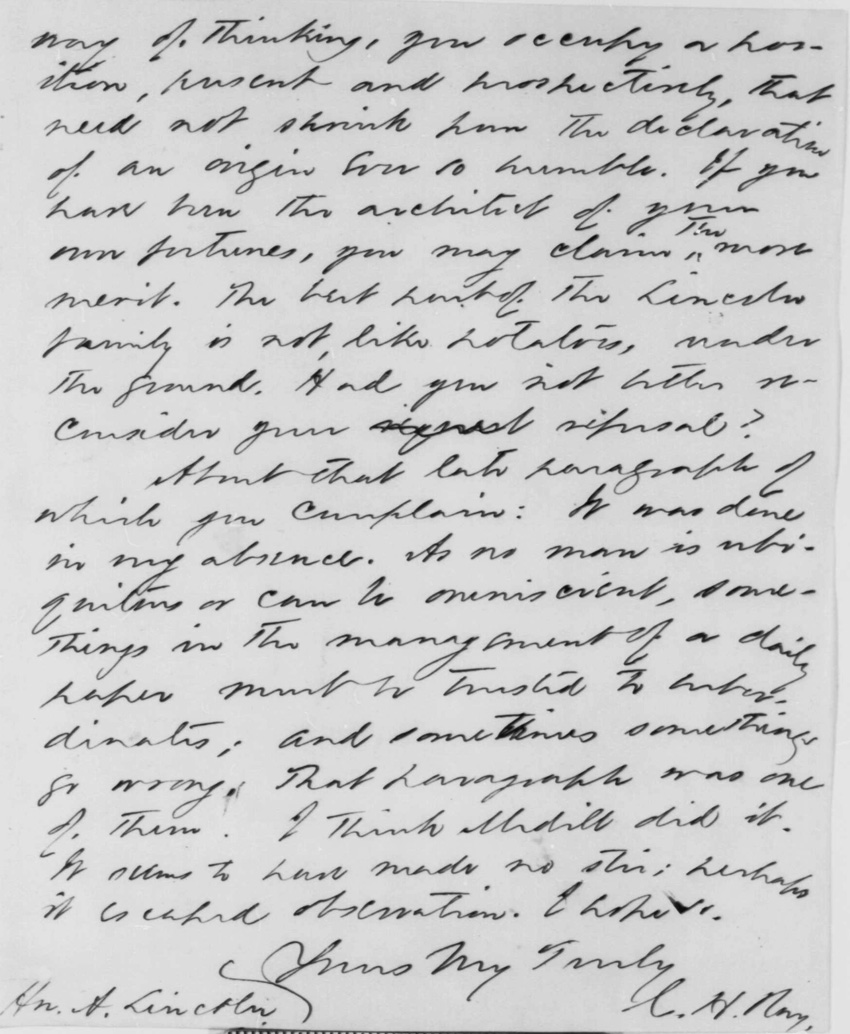 way of thinking, you occupy a pos-
ition, present and prospectively, that
need not shrink from the declaration
of an origin ever so humble. If you
have been the architect of your
own fortunes, you may claim the more
merit. The best part of the Lincoln
family is not, like potatoes, under
the ground. Had you not better re-
consider your request refusal?
About that late paragraph of
which you complain: It was done
in my absence. As no man is ubi-
quitous or can be omniscient, some-
things in the management of a daily
paper must be trusted to subor-
dinates; and sometimes somethings
go wrong. That paragraph was one
of them. I think Medill did it.
It seems to have made no stir; perhaps
it escaped observation. I hope so.
Yours My Truly
C. H. Ray,
Hn. A. Lincoln